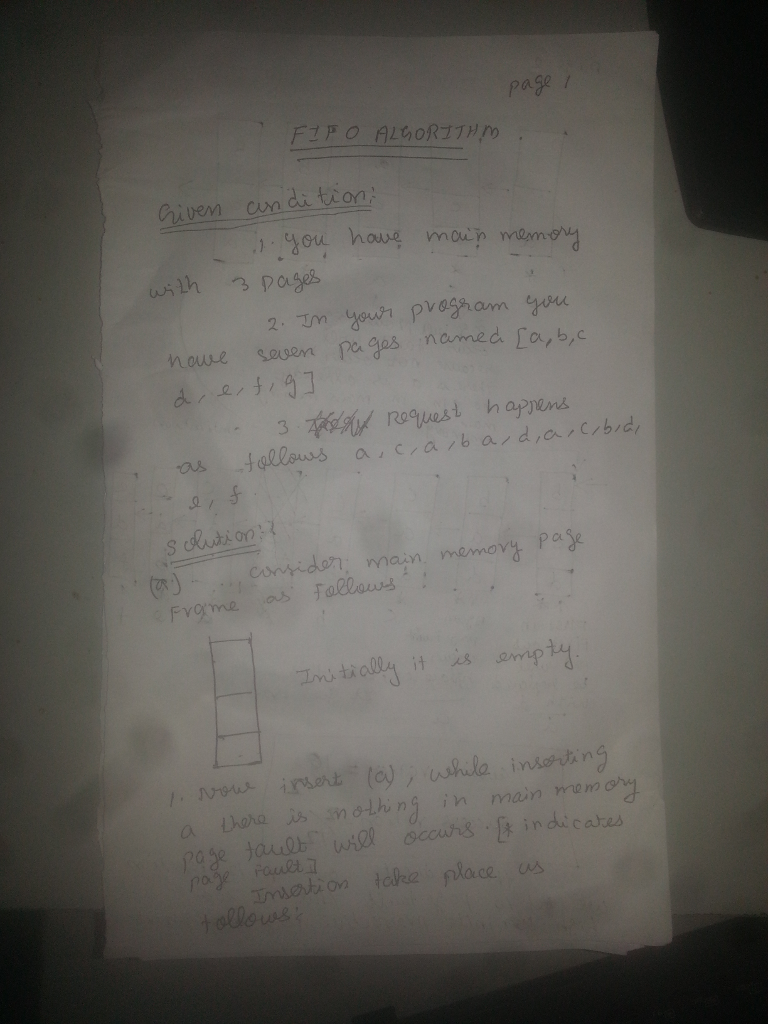 page 1
FIFO ALGORITHM
Given condition:
1. you have main memory
with 3 pages
2. In your program you
have seven pages named [a, b, c
d, e, f, g]
3. request happens
as follows a, c, a, b a, d, a, c, b, d,
e, f
Solution:
(a) consider main memory page
Frame as follows:
Initially it is empty.
1. Now insert (a), while inserting
a there is nothing in main memory
page fault will occurs. [* indicates
page fault]
Insertion take place as
follows: